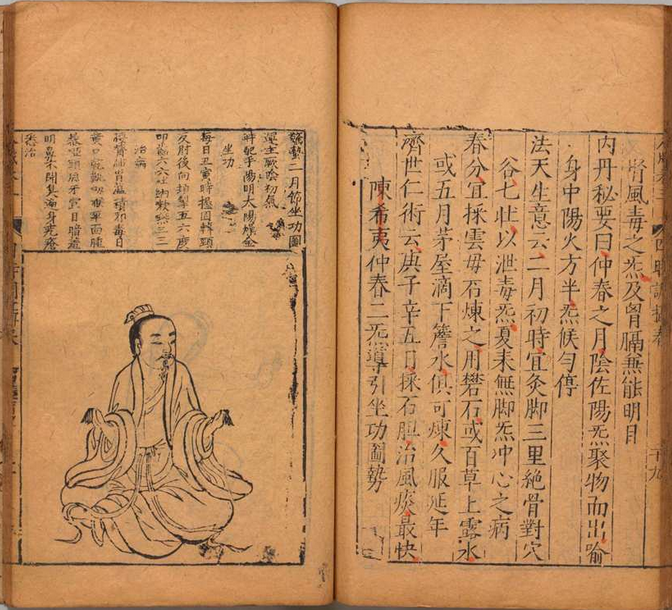 風毒之炁及胷膈兼能明目
內丹秘要曰仲春之月陰佐陽炁聚物而出喻
身中陽火方半炁候勻停
法天生意云二月初時宜灸脚三里絕骨對穴
各七壯以泄毒炁夏來無脚炁冲心之病
春分宜採雲母石煉之用礬石或百草上露水
或五月茅屋滴下簷水俱可煉久服延年
濟世仁術云庚子辛丑日採石膽治風痰最快
陳希夷仲春二炁導引坐功圖勢
驚蟄二月節坐功圖
運主厥陰初炁
時配手陽明大腸燥金
坐功
每日丑寅時握固轉頸
反肘後向頓掣五六度
叩齒六六吐納漱咽三三
治病
腰膂肺胃蘊積邪毒目
黃口乾鼽衂喉痺面腫
暴啞頭風牙宣目暗羞
明鼻不聞臭遍身疙瘡
悉治